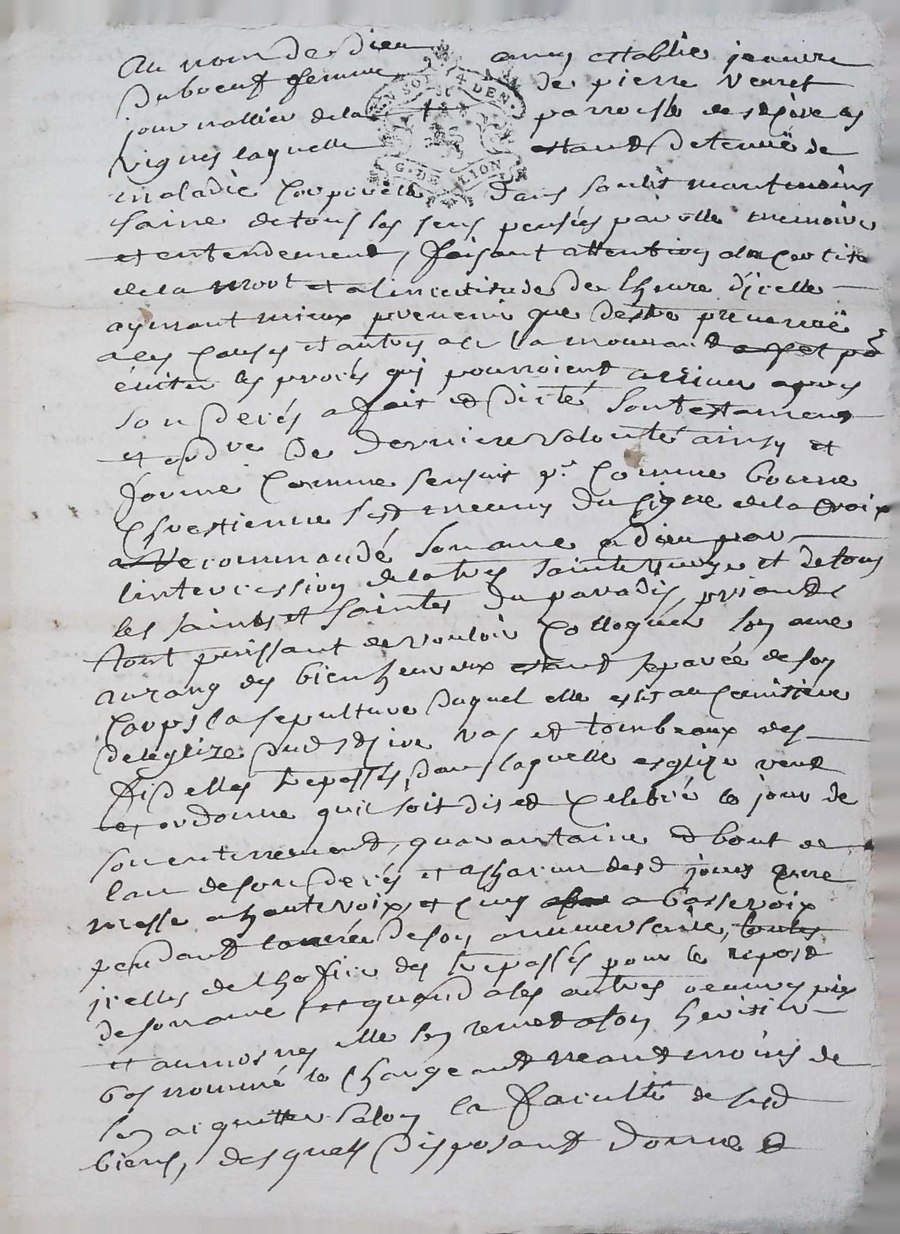 Au nom de Dieu amen establie jeanne
Duboeuf femme de pierre Verret
journallier de la parroisse de
vignes laquelle estant detenuë de
maladie corporelle dans son lit neantmoins
saine de tous les sens pensées parolle memoire
et entendement, faisant attention a la certitu
de la mort et a l'incertitude de l'heure d'jcelle
aymant mieux prevenir que destre prevenuë
a ces causes et autres a la mouvant
éviter les procés qui pourroient arriver apres
son decés a fait et dicté son testament
et ordre de derniere volonté ainsy et
forme comme sensuit p.r comme bonne
chrestienne sest munie du signe de la croix
a recommandé son ame a dieu par
l'intercession de la tres sainte vierge et de tous
les saints et saintes du paradis priant le
tout puissant de vouloir colloquer son ame
au rang des bienheureux estant separée de son
corps la sepulture duquel elle eslit au cemitiere
de leglize dud vas et tombeaux des
fidelles trepassés, dans laquelle esglize veut
et ordonne quil soit dis et celebré le jour de
son enterrement, quarantaine et bout de
lan de son decés et a chacun desd jours une
messe a haute voix, et cinq a basse voix
pendant lannée de son anniversaire, toutes
jcelles de lhofice des trepassés pour le repost
de son ame et quand a les autres oeuvres pies
et aumosnes elle sen remet a son heritier
bas nommé le chargeant neantmoins de
sen acquitter selon la faculté de sesd
biens, desquels disposant donne et
G. DE LION